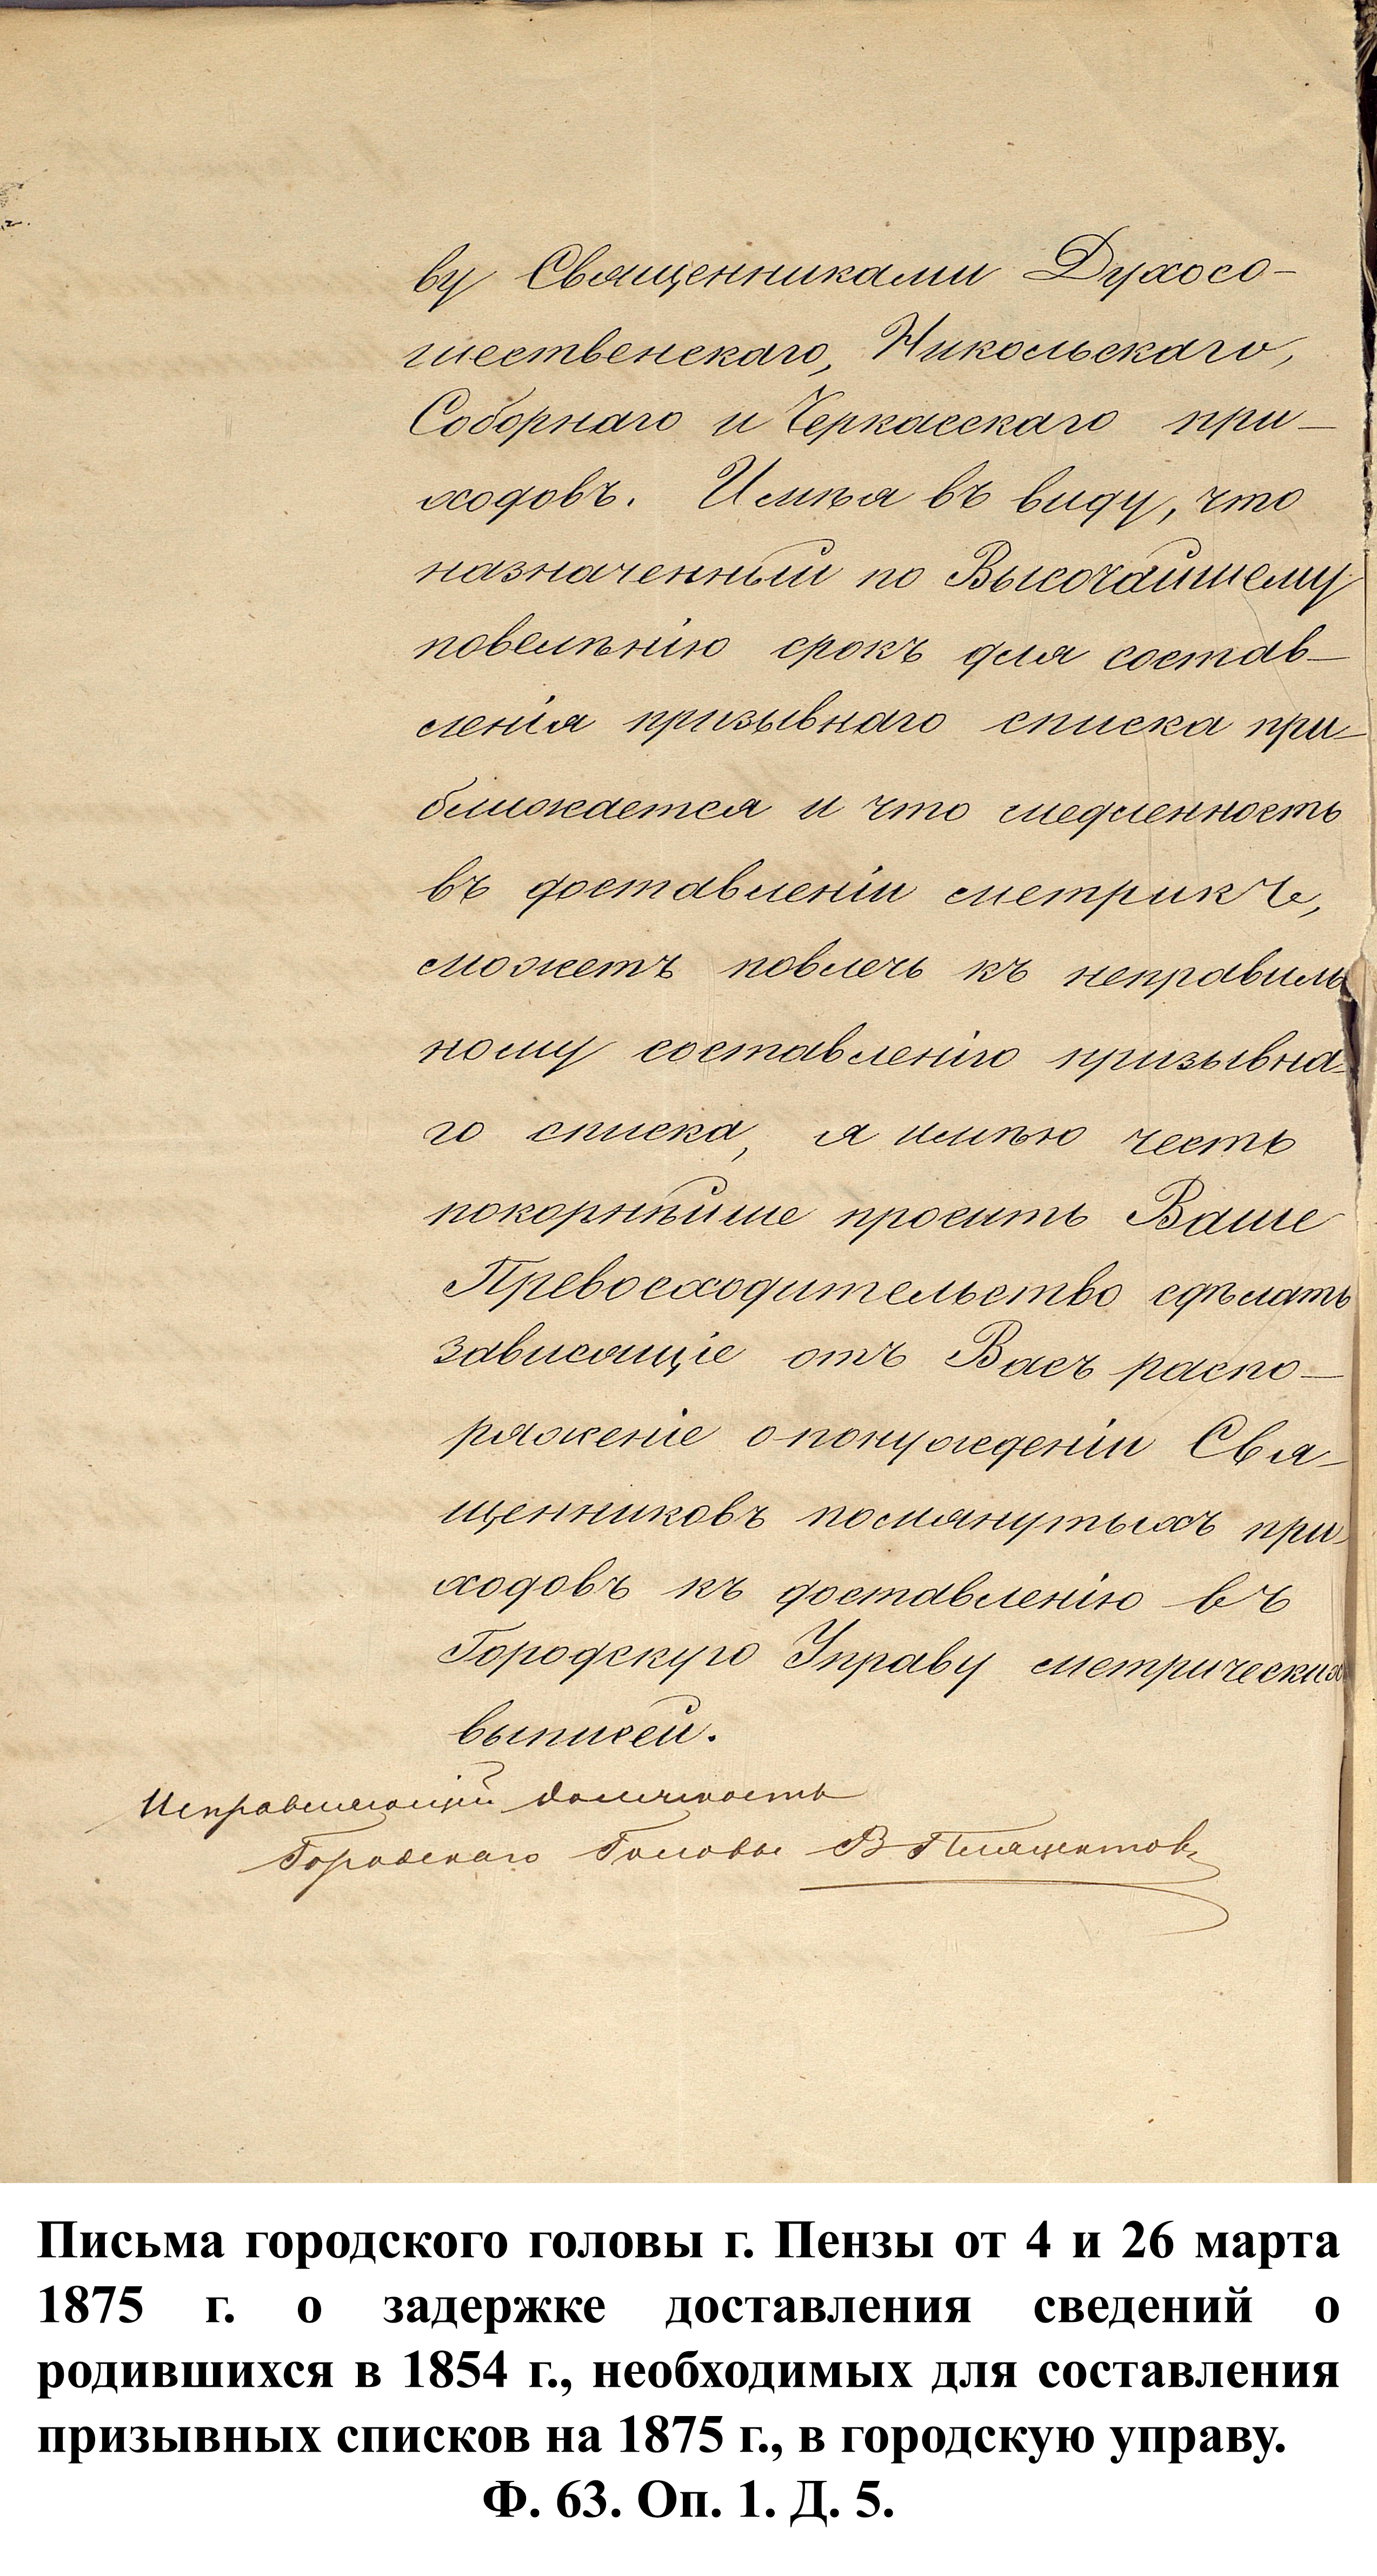 ву Священниками Духосо-
шественскаго, Никольскаго,
Соборнаго и Черкасскаго при-
ходовъ. Имѣя въ виду, что
назначенный по Высочайшему
повелѣнію срокъ для состав-
ленія призывнаго списка при-
ближается и что медленность
въ доставленіи метрикъ,
можетъ повлечь къ неправиль
ному составленію призывна-
го списка, я имѣю честь
покорнѣйше просить Ваше
Превосходительство сдѣлать
зависящіе отъ Васъ распо-
ряженіе о понужденіи Свя-
щенниковъ помянутыхъ при-
ходовъ къ доставленію въ
Городскую Управу метрических
выписей.
Исправляющій должность
Городскаго Головы В
Письма городского головы г. Пензы от 4 и 26 марта
1875 г. о задержке доставления сведений о
родившихся в 1854 г., необходимых для составления
призывных списков на 1875 г., в городскую управу.
Ф. 63. Оп. 1. Д. 5.